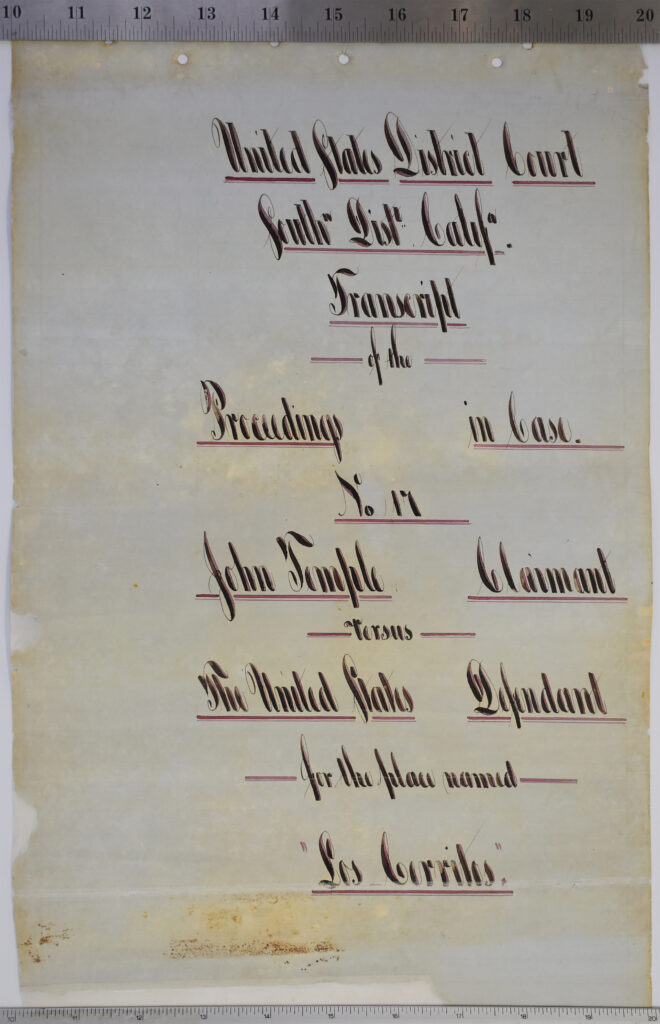 10 11 12 13 14 15 16 17 18 19 20
United States District Court
South<sup>n</sup> Dist<sup>t</sup> Calif<sup>a</sup>.
Transcript
of the
Proceedings in Case.
No 17
John Temple Claimant
versus
The United States Defendant
for the place named
"Los Cerritos".
10 11 12 13 14 15 16 17 18 19 20